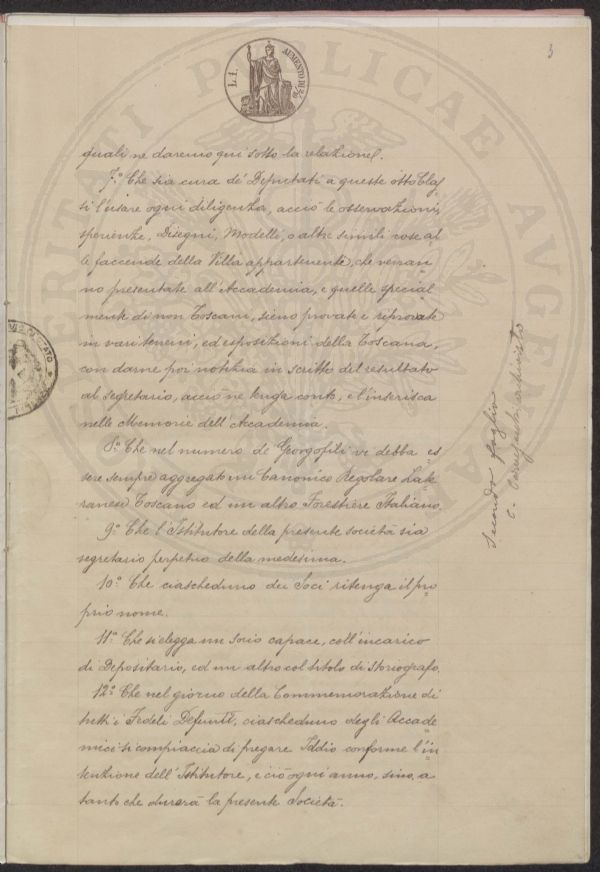 3
L. 1.
AUMENTO DI 2/10
VERITATI PUBLICAE AUGENDAE
quali ne daremo qui sotto la relazione.
7.° Che sia cura de' Deputati a queste otto Clas
si l'usare ogni diligenza, acciò le osservazioni,
sperienze, Disegni, Modelli, o altre simili cose al
le faccende della Villa appartenenti, che verran
no presentate all'Accademia, e quelle special
mente di non Toscani, sieno provate e riprovate
in vari terreni, ed esposizioni della Toscana,
con darne poi notizia in scritto del resultato
al segretario, acciò ne tenga conto, e l'inserisca
nelle Memorie dell'Accademia.
8.° Che nel numero de Georgofili vi debba es
sere sempre aggregato un Canonico Regolare Late
ranese Toscano ed un altro Forestiere Italiano.
9.° Che l'Istitutore della presente società sia
segretario perpetuo della medesima.
10.° Che ciascheduno dei Soci ritenga il pro
prio nome.
11.° Che si elegga un socio capace, coll'incarico
di Depositario, ed un altro col titolo di Storiografo.
12.° Che nel giorno della Commemorazione di
tutti i Fedeli Defunti, ciascheduno degli Accade
mici si compiaccia di pregare Iddio conforme l'in
tenzione dell'Istitutore, e ciò ogni anno, sino, a
tanto che durerà la presente Società.
Secondo foglio
archivista